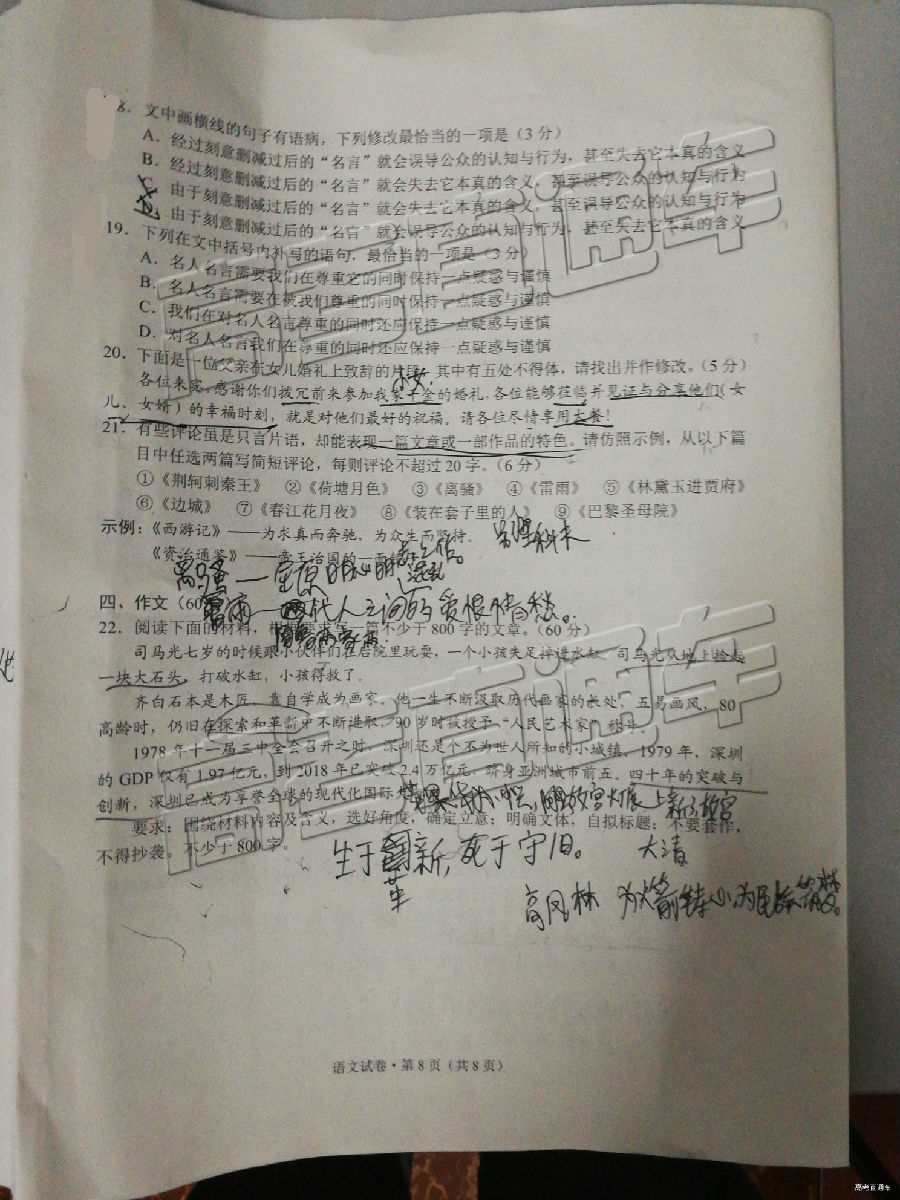 8．文中画横线的句子有语病，下列修改最恰当的一项是（3分）
A．经过刻意删减过后的“名言”就会误导公众的认知与行为，甚至失去它本真的含义
B．经过刻意删减过后的“名言”就会失去它本真的含义，甚至误导公众的认知与行为
C．由于刻意删减过后的“名言”就会失去它本真的含义，甚至误导公众的认知与行为
D．由于刻意删减过后的“名言”就会误导公众的认知与行为，甚至失去它本真的含义
19．下列在文中括号内补写的语句，最恰当的一项是（3分）
A．名人名言需要我们在尊重它的同时保持一点疑惑与谨慎
B．名人名言需要在被我们尊重的同时保持一点疑惑与谨慎
C．我们在对名人名言尊重的同时还应保持一点疑惑与谨慎
D．对名人名言我们在尊重的同时还应保持一点疑惑与谨慎
20．下面是一位父亲在女儿婚礼上致辞的片段，其中有五处不得体，请找出并作修改。（5分）
小女．
各位来宾，感谢你们拨冗前来参加我家千金的婚礼，各位能够莅临并见证与分享他们（女
儿、女婿）的幸福时刻，就是对他们最好的祝福。请各位尽情享用大餐！
21．有些评论虽是只言片语，却能表现一篇文章或一部作品的特色。请仿照示例，从以下篇
目中任选两篇写简短评论，每则评论不超过20字。（6分）
①《荆轲刺秦王》 ②《荷塘月色》 ③《离骚》 ④《雷雨》 ⑤《林黛玉进贾府》
⑥《边城》 ⑦《春江花月夜》 ⑧《装在套子里的人》 ⑨《巴黎圣母院》
示例：《西游记》——为求真而奔驰，为众生而坚持。
《资治通鉴》——帝王治国的一面镜
离骚—屈原
雷雨—两代人之间的爱恨情愁。
四、作文（60
22．阅读下面的材料，根据要求写一篇不少于800字的文章。（60分）
司马光七岁的时候跟小伙伴们在后院里玩耍，一个小孩失足掉进水缸，司马光从地上捡起
一块大石头，打破水缸，小孩得救了。
齐白石本是木匠，靠自学成为画家。他一生不断汲取历代画家的长处，五易画风，80
高龄时，仍旧在探索和革新中不断进取，90岁时被授予“人民艺术家”称号。
1978年十一届三中全会召开之时，深圳还是个不为世人所知的小城镇。1979年，深圳
的GDP仅有1.97亿元，到2018年已突破2.4万亿元，跻身亚洲城市前五。四十年的突破与
创新，深圳已成为享誉全球的现代化国际大
要求：围绕材料内容及含义，选好角度，确定立意；明确文体，自拟标题；不要套作，
不得抄袭。不少于800字。
生于革新，死于守旧。 大清
高凤林 为火箭铸心 为民族筑梦。
语文试卷·第8页（共8页）
高考直通车
高考直通车
高考直通车
高考直通车